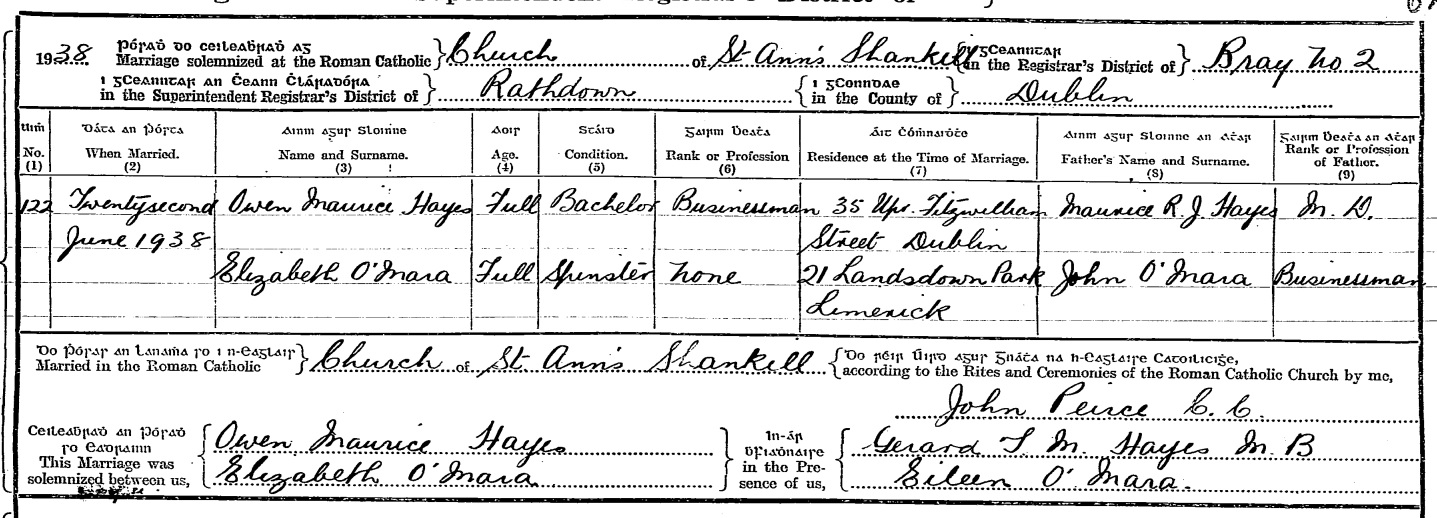 Pórad do ceileabrad ag
1938. Marriage solemnized at the Roman Catholic } Church of St Ann's Shankill { i gCeanntar in the Registrar's District of } Bray No 2
i gCeanntar an Ceann Cláradóra
in the Superintendent Registrar's District of } Rathdown { i gConndae in the County of } Dublin
Uim Dáta an Pórta Ainm agus Sloinne Aois Stáid Gairm Beata Áit Comnuidte Ainm agus Sloinne an Atar Gairm Beata an Atar
No. When Married. Name and Surname. Age. Condition. Rank or Profession Residence at the Time of Marriage. Father's Name and Surname. Rank or Profession of Father.
(1) (2) (3) (4) (5) (6) (7) (8) (9)
122 Twentysecond Owen Maurice Hayes Full Bachelor Businessman 35 Upr. Fitzwilliam Maurice R. J Hayes M. D.
June 1938 Street Dublin
Elizabeth O'Mara Full Spinster None 21 Landsdown Park John O'Mara Businessman
Limerick
Do pórad an lanama so i n-eaglais
Married in the Roman Catholic } Church of St. Ann's Shankill { Do réir Uird agus Gnáta na h-Eaglaise Catoilicige,
according to the Rites and Ceremonies of the Roman Catholic Church by me,
John Peirce C. C.
Ceileabrad an Pórad so eadrainn
This Marriage was solemnized between us, { Owen Maurice Hayes
Elizabeth O'Mara }
In-ár bFiadnaire
in the Presence of us, { Gerard T. M. Hayes M B
Eileen O'Mara.